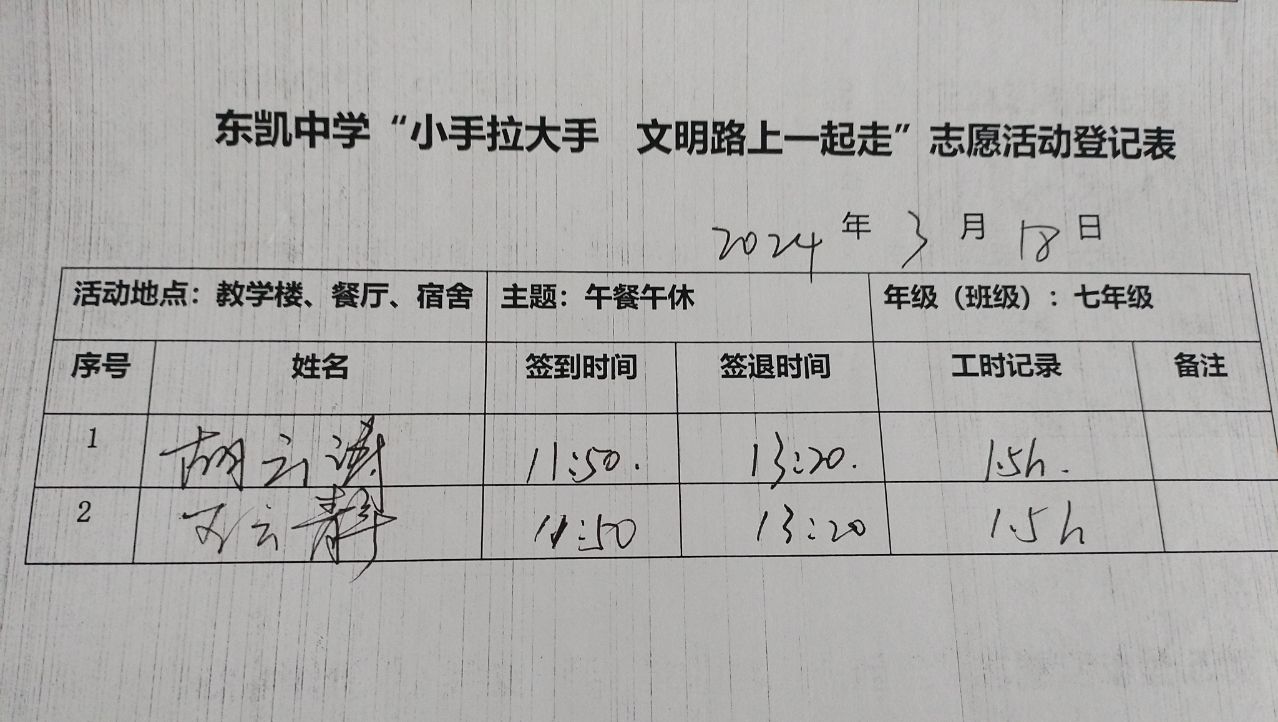 东凯中学“小手拉大手 文明路上一起走”志愿活动登记表
2024 年 3 月 18 日
活动地点：教学楼、餐厅、宿舍 主题：午餐午休 年级（班级）：七年级
序号 姓名 签到时间 签退时间 工时记录 备注
1 胡云涛 11:50. 13:20. 1.5h.
2 云静 11:50 13:20 1.5h